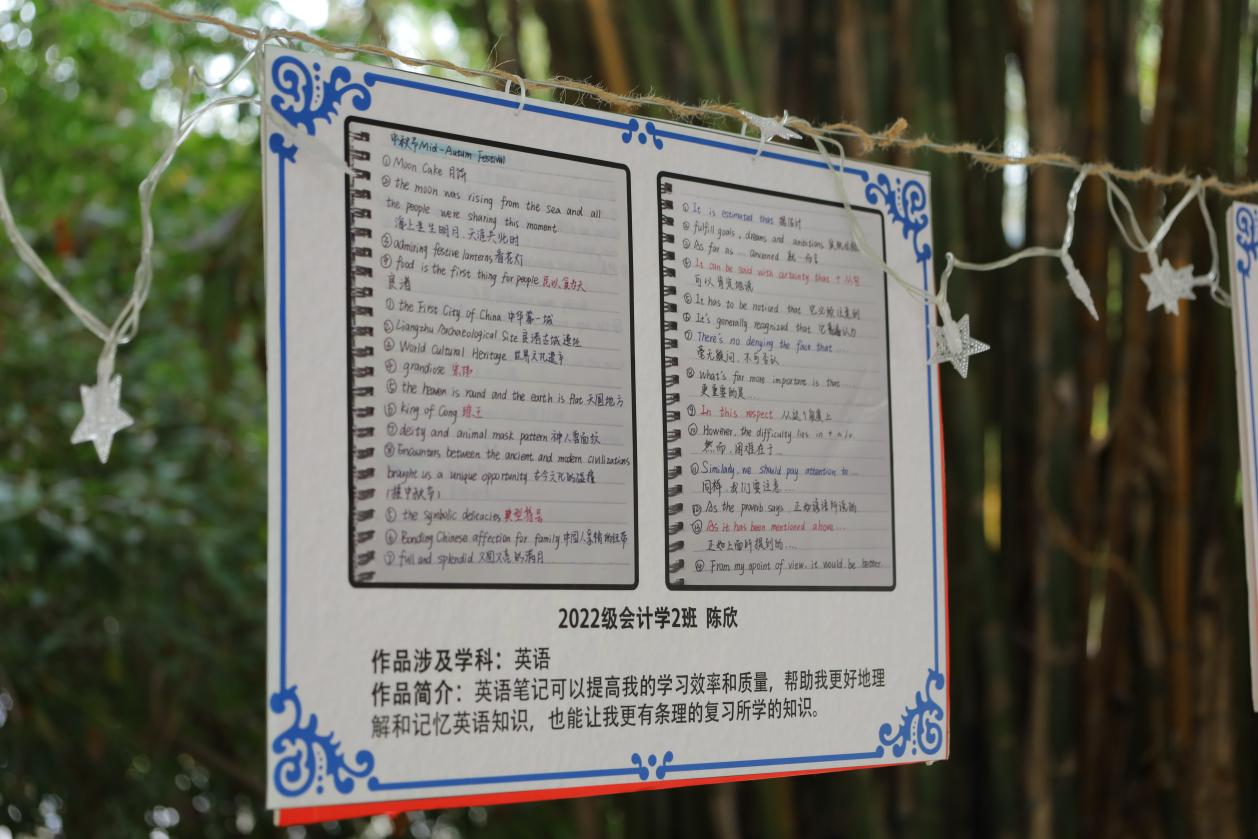 中秋节Mid-Autum Festival
① Moon Cake 月饼
② the moon was rising from the sea and all
the people were sharing this moment
海上生明月,天涯共此时
③ admiring festive lanterns 看花灯
④ food is the first thing for people 民以食为天
良渚
① the First City of China 中华第一城
② Liangzhu Archaeological Site 良渚古城遗址
③ World Cultural Heritage 世界文化遗产
④ grandiose 宏伟
⑤ the heaven is round and the earth is flat 天圆地方
⑥ king of Cong 琮王
⑦ deity and animal mask pattern 神人兽面纹
⑧ Encounters between the ancient and modern civilizations
brought us a unique opportunity 古今文化的碰撞
(接中秋节)
⑤ the symbolic delicacies 典型精品
⑥ Bonding Chinese affection for family 中国人亲情的纽带
⑦ full and splendid 又圆又亮的满月
① It is estimated that 据估计
② fulfill goals, dreams and ambitions
③ As far as ... concerned 就...而言
④ It can be said with certainty that + 从句
可以肯定地说
⑤ It has to be noticed that 它必须注意到
⑥ It's generally recognized that 它普遍认为
⑦ There's no denying the fact that ...
毫无疑问,不可否认
⑧ what's far more important is that ...
更重要的是...
⑨ In this respect 从这个角度上
⑩ However, the difficulty lies in + n/v.
然而,困难在于...
⑪ Similarly, we should pay attention to ...
同样,我们要注意...
⑫ As the proverb says 正如谚语所说的
⑬ As it has been mentioned above...
正如上面所提到的...
⑭ From my opoint of view, it would be better
2022级会计学2班 陈欣
作品涉及学科：英语
作品简介：英语笔记可以提高我的学习效率和质量，帮助我更好地理
解和记忆英语知识，也能让我更有条理的复习所学的知识。